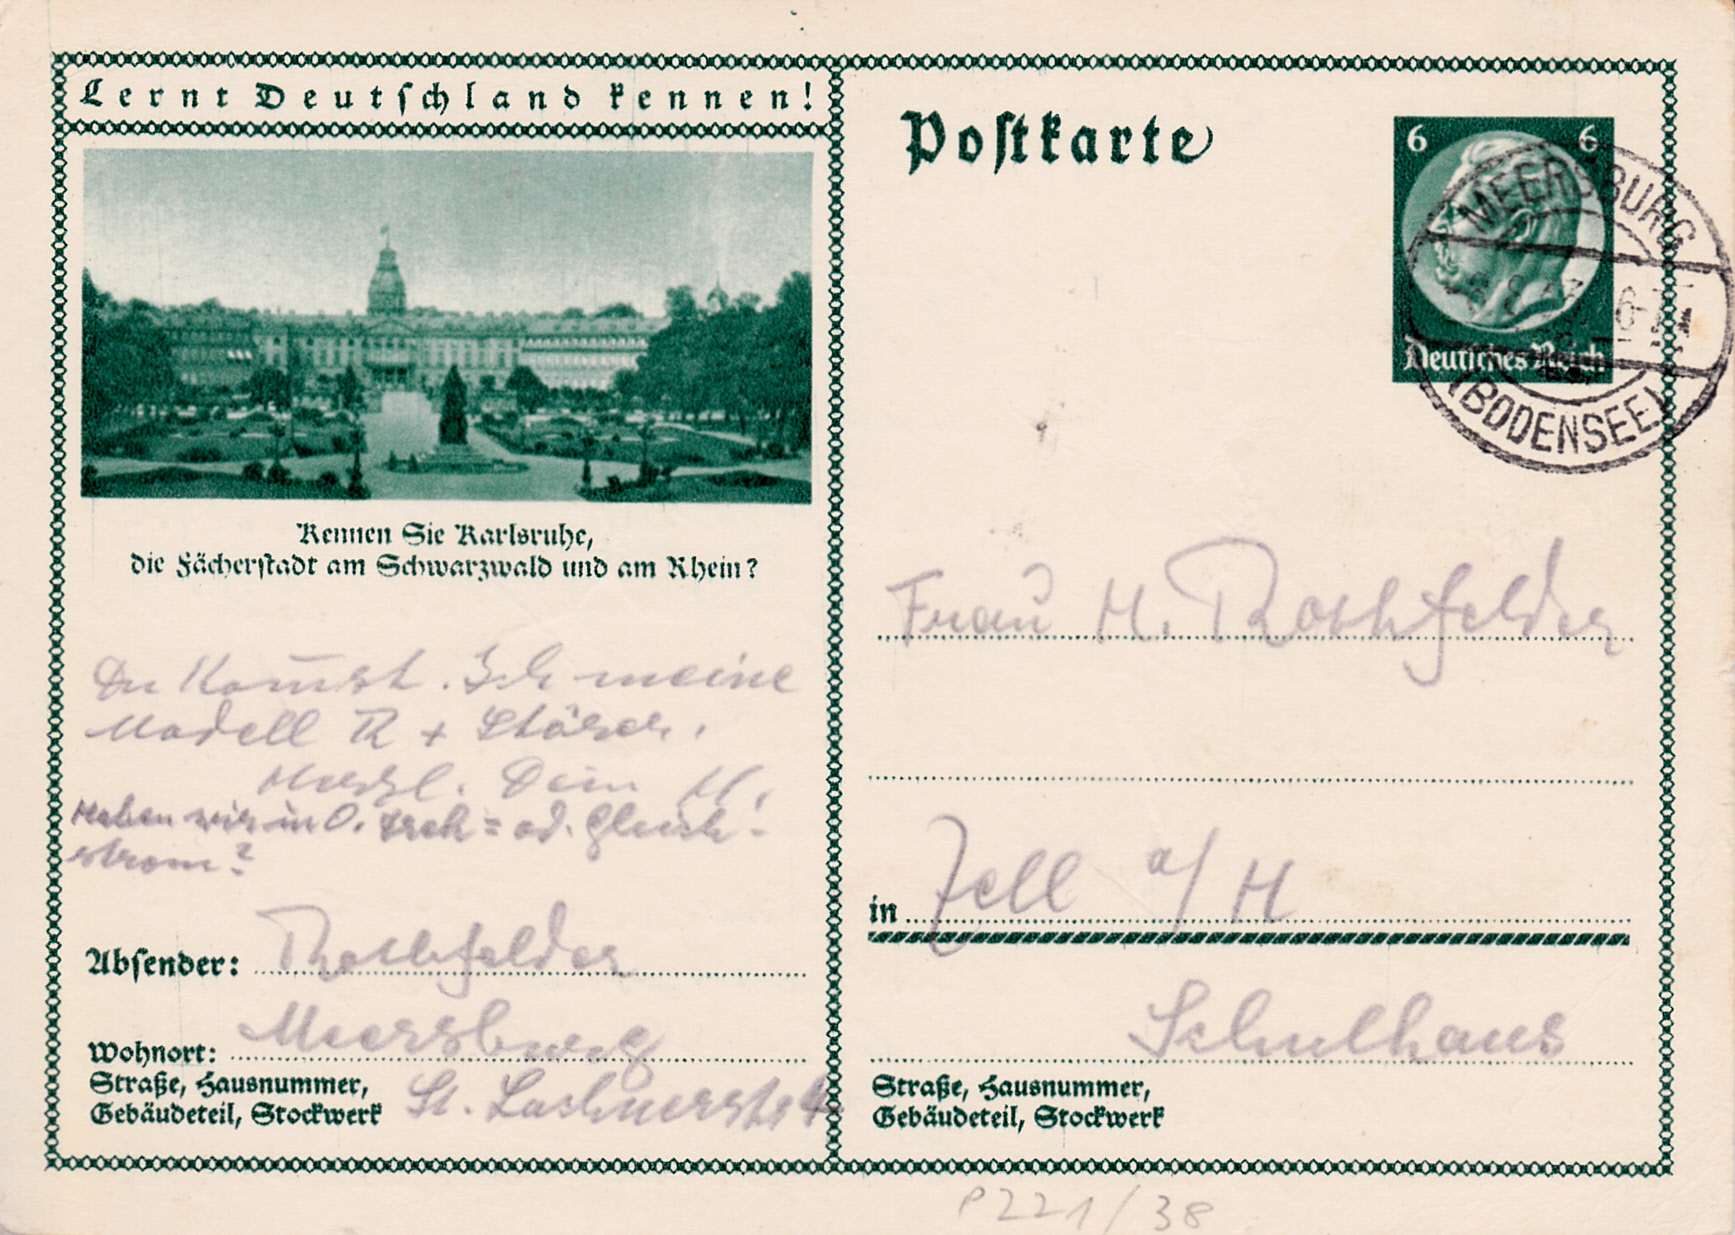 Lernt Deutschland kennen!
Kennen Sie Karlsruhe,
die Fächerstadt am Schwarzwald und am Rhein?
Du kommst. Ich meine
Modell R + Störer.
Herzl. Dein H.
Haben wir in O. Dreh= od. Gleich-
strom?
Absender: Rothfelder
Wohnort: Meersburg
Straße, Hausnummer,
Gebäudeteil, Stockwerk St. Lochnerstr.
Postkarte
6 6
Deutsches Reich
MEERSBURG
(BODENSEE)
Frau H. Rothfelder
in Zell a/H
Schulhaus
Straße, Hausnummer,
Gebäudeteil, Stockwerk
P221/38